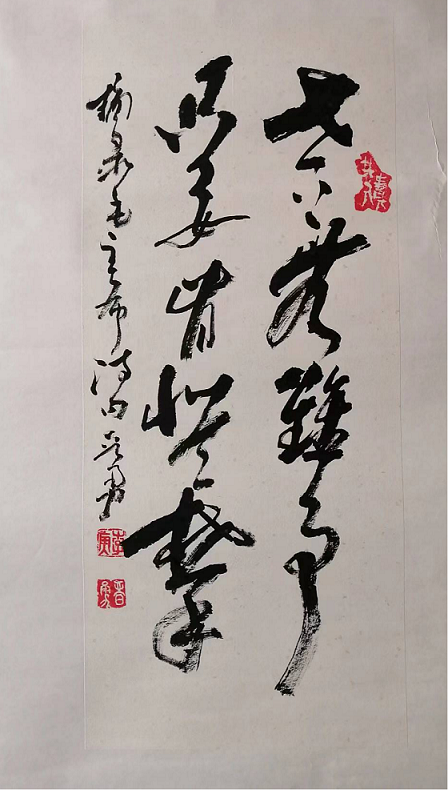 世上無難事
只要肯登攀
摘录毛主席诗句